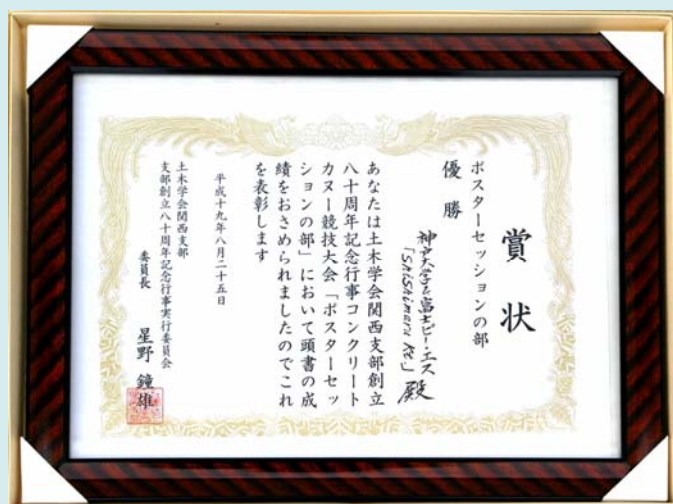 賞状
ポスターセッションの部
優勝
神戸大学&富士ピー・エス
殿
あなたは土木学会関西支部創立
八十周年記念行事コンクリート
カヌー競技大会「ポスターセッ
ションの部」において頭書の成
績をおさめられましたのでこれ
を表彰します
平成十九年八月二十五日
土木学会関西支部
支部創立八十周年記念行事実行委員会
委員長 星野 鐘雄